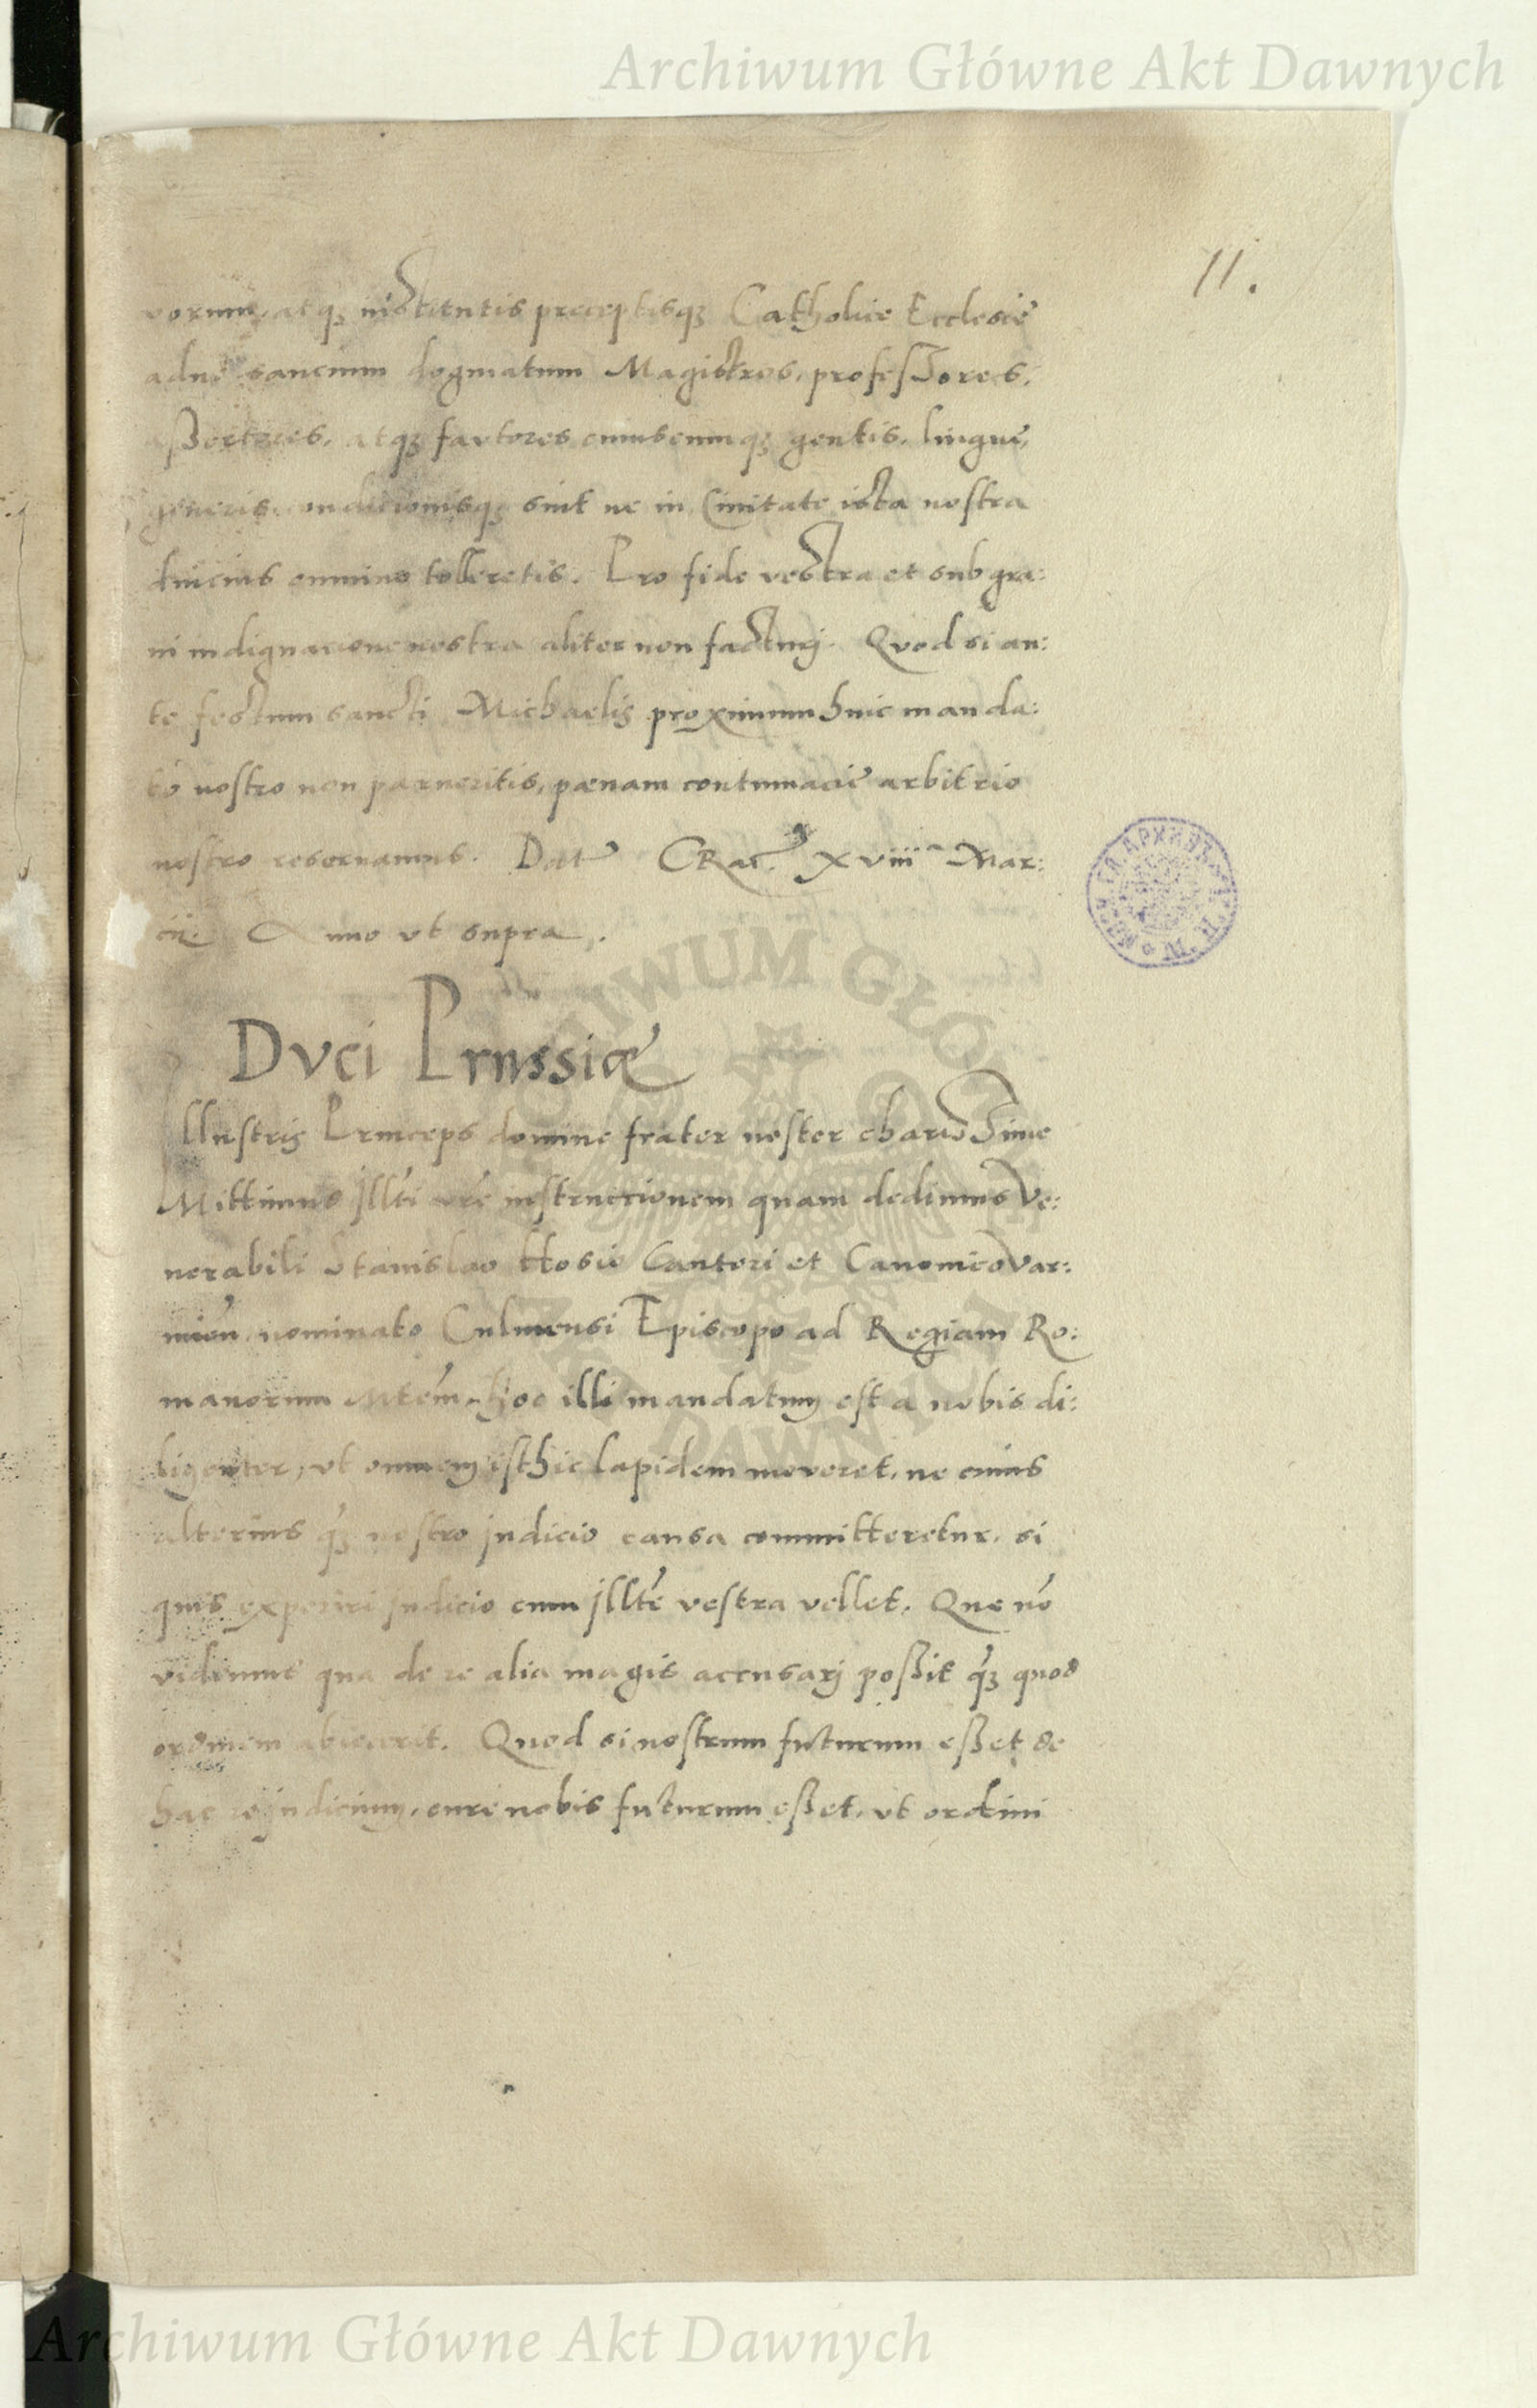 Archiwum Główne Akt Dawnych
11.
vorum, atq; institutis preceptisq; Catholice Ecclesie
sancium dogmatum Magistros, professores,
assertores, atq; fautores cuiuscumq; gentis, lingue,
generis, condicionisq; sint ne in Civitate ista nostra
diucius omnino tolleretis. Pro fide vestra et sub gra:
vi indignacione nostra aliter non facturj. Quod si an:
te festum sancti Michaelis proximum huic manda:
to nostro non parueritis, pœnam contumacie arbitrio
nostro reservamus. Dat Crac. XVIIIa Mar:
cii. Anno vt supra.
DVCi Prussiæ
Illustris Princeps domine frater noster charissime
Mittimus Illti vre instruccionem quam dedimus Ve:
nerabili Stanislao Hosio Cantori et Canonico Var:
mien. nominato Culmensi Episcopo ad Regiam Ro:
manorum Mtem. Hoc illi mandatum est a nobis di:
ligenter, vt omnem isthic lapidem moveret, ne cuius
alterius q; nostro judicio causa committeretur, si
quis experiri judicio cum Illte vestra vellet. Que no
videmus qua de re alia magis accusarj possit q; quod
ordinem abiecerit. Quod si nostrum futurum esset de
hac re judicium, cure nobis futurum esset, vt ordini
ARCHIWUM GŁÓWNE AKT DAWNYCH
Archiwum Główne Akt Dawnych